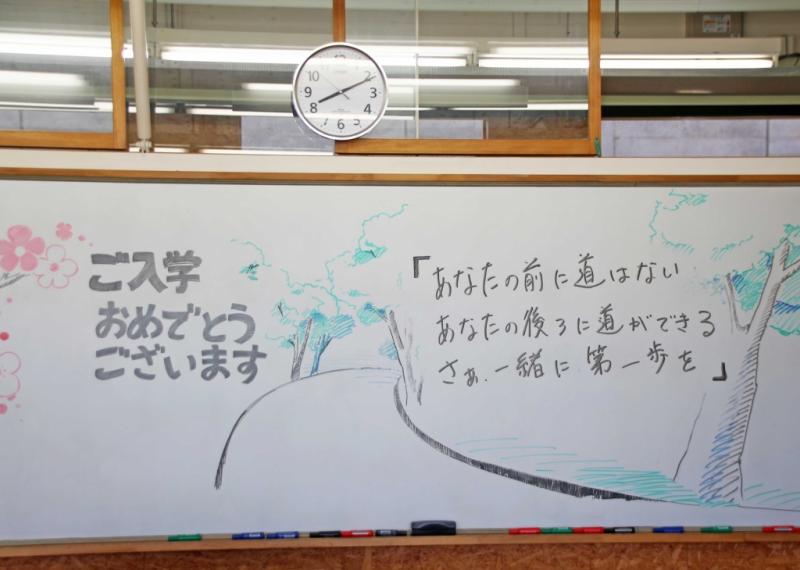 10
2
9
3
8
6
ご入学
おめでとう
ございます
『あなたの前に道はない
あなたの後ろに道ができる
さぁ、一緒に第一歩を』